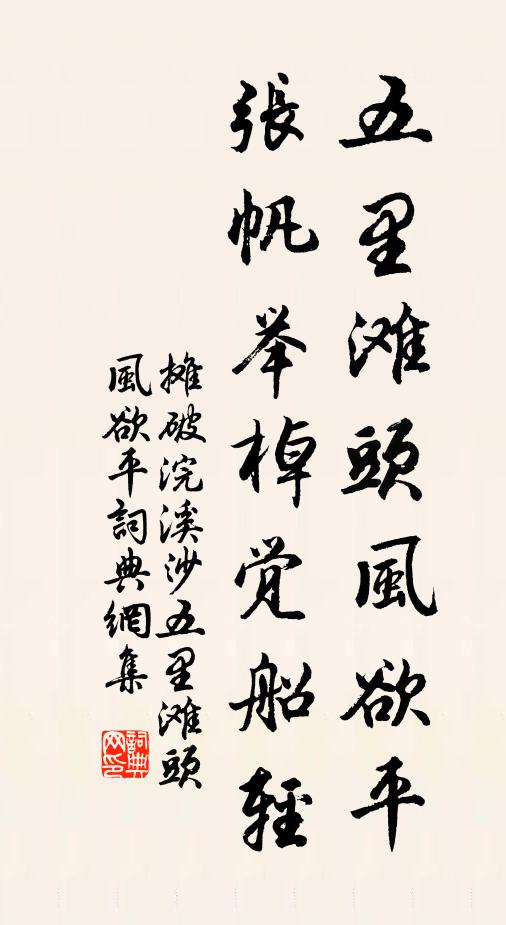 五里滩頭風欲平
張帆举棹觉船輕
摊破浣溪沙五里滩頭
風欲平詞典網集
詞典网印